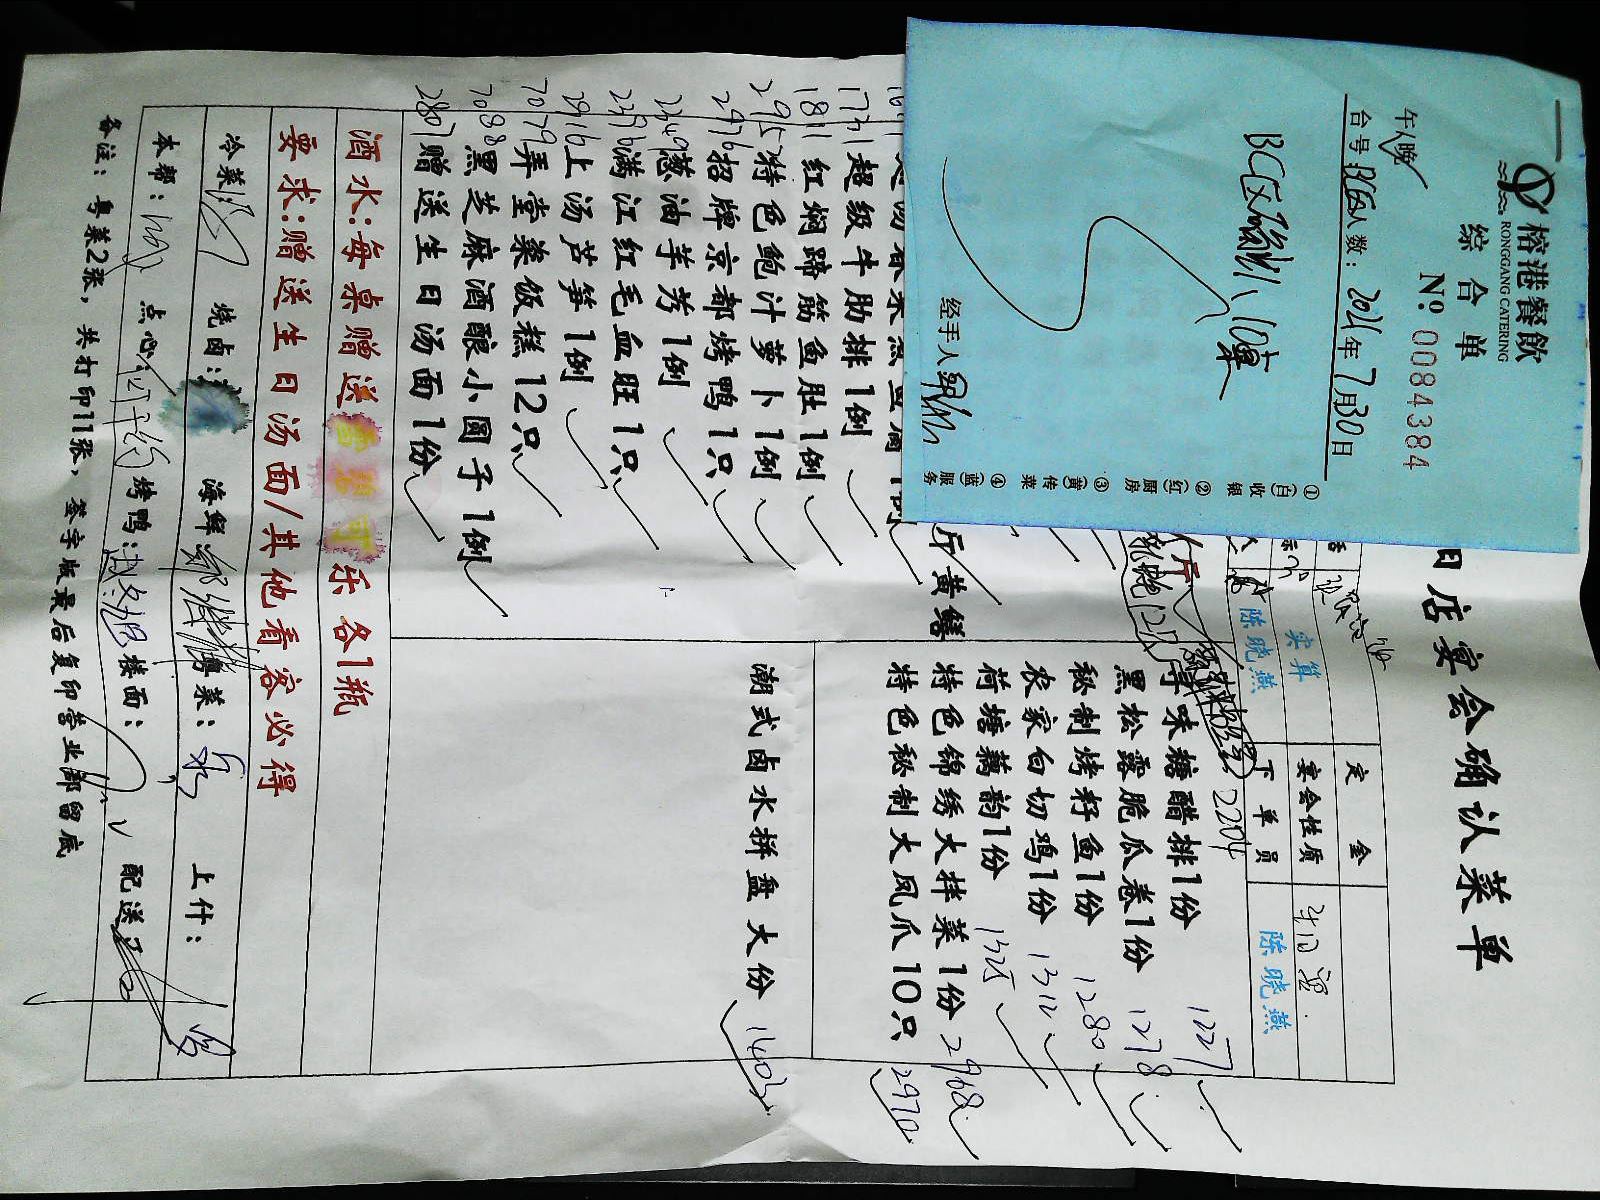 榕港餐飲
RONGGANG CATERING
综合单
No 0084384
午人晚
台号:BC区人数: 2021年7月30日
BC区
10桌
经手人
①(白)收银 ②(红)厨房 ③(黄)传菜 ④(蓝)服务
日店宴会确认菜单
定金
实算
宴会性质
陈晓燕
下单员
陈晓燕
2204
味糖醋排1份 1227
黑松露脆瓜卷1份 1278
秘制烤籽鱼1份 1280
农家白切鸡1份 1312
荷塘藕韵1份 1325
特色锦绣大拌菜1份 2968
特色秘制大凤爪10只 2970
潮式卤水拼盘大份 1403
斤黄鳝
1731超级牛肋排1例
1811红焖蹄筋鱼肚1例
2915特色鲍汁萝卜1例
2976招牌京都烤鸭1只
2349葱油芋艿1例
2398满江红毛血旺1只
2916上汤芦笋1例
7079弄堂粢饭糕12只
7088黑芝麻酒酿小圆子1例
2801赠送生日汤面1份
酒水:每桌赠送雪碧可乐各1瓶
要求:赠送生日汤面/其他看客必得
冷菜 烧卤: 海鲜 粤菜: 上什:
本帮: 点心 烤鸭: 楼面: 配送
备注: 粤菜2张, 共打印11张, 签字版最后复印营业部留底